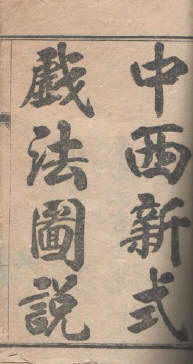 中西新式
戲法圖說